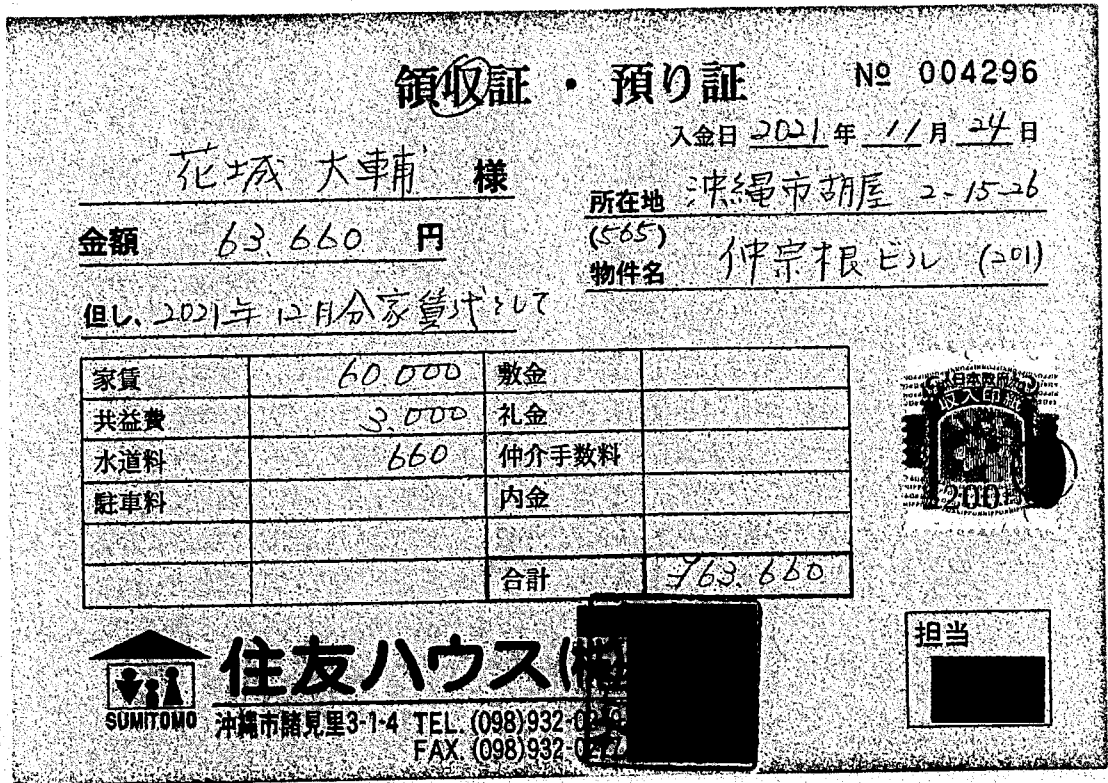 領収証・預り証 № 004296
入金日 2021年 11月 24日
花城 大輔 様
所在地 沖縄市胡屋 2-15-26
金額 63.660 円
(565)
物件名 仲宗根ビル (201)
但し、2021年12月分家賃代として
家賃 60.000 敷金
共益費 3.000 礼金
水道料 660 仲介手数料
駐車料 内金
合計 ¥63.660
日本政府
収入印紙
200円
担当
住友ハウス(株)
SUMITOMO
沖縄市諸見里3-1-4 TEL.(098)932-
FAX (098)932-